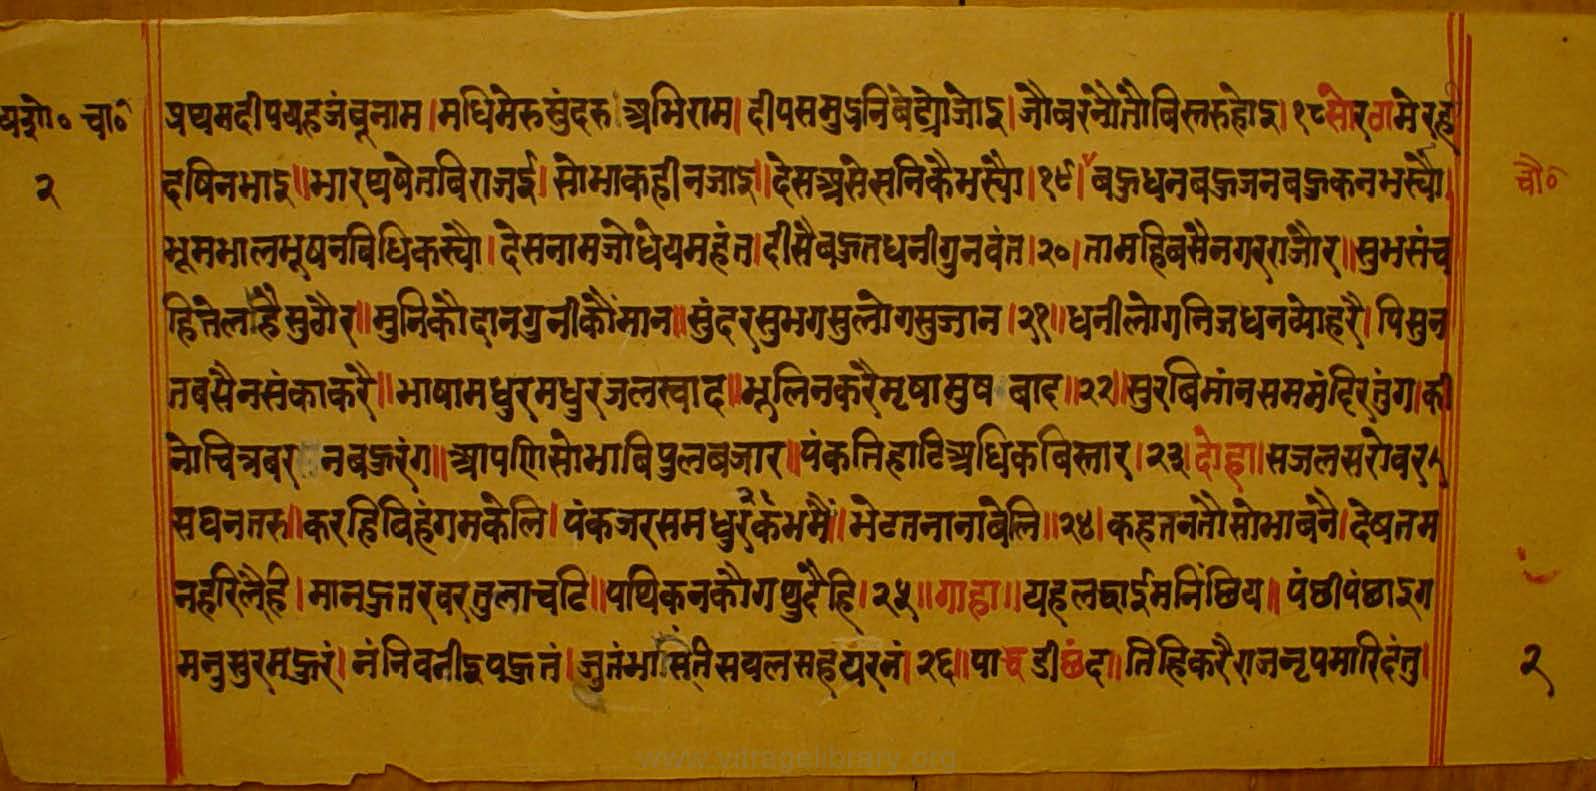 यशो० चो०
२
प्रथमदीपयहजंबूनाम।मधिमेरुसुंदरु अभिराम।दीपसमु
१८सोरठामेरह
दषिनभाइ॥भारथषेतबिराजई।सोभाकहीनजाइ॥देसअसेसनिकैभर्यौ।१९।बहुधनबहुजनबहुकनभर्यौ।
चौ०
भूमभालभूषनबिधिकर्यौ।देसनामजोधेयमहंत।दीसैबहुतधनीगुनवंत।२०।तामहिबसैनगरराजौर॥सुभसंच
सुठौर॥मुनिकौदानगुनीकौंमान॥सुंदरसुभगसुलोगसुजान।२१॥धनीलोगनिजधनब्योहरै।पिसुन
नबसैनसंकाकरै॥भाषामधुरमधुरजलस्वाद॥भूलिनकरैमृषामुष बाद॥२२॥सुरबिमांनसममंदिरतुंग।की
नोचित्रबर नबहुरंग॥आपणिसोभाबिपुलबजार॥पंकतिहाटिअधिकबिस्तार।२३।दोहा॥सजलसरोबर
सघनतरु॥करहिविहंगमकेलि।पंकजरसमधुरकंभमैं॥भेटतनानाबेलि॥२४।कहतनतौसोभाबनै।देषतम
नहरिलैहि।मानहुतरवरतुलाचटि॥पथिकनकौगथुदैहि।२५॥गाहा॥यहलछाईमनिंछिय॥पंछीपंछाइग
मनुसुरमहुरं।
सयलसहयरनं।२६॥पाधडीछंद॥तिहिकरैराजनृपमारिदंतु।
२